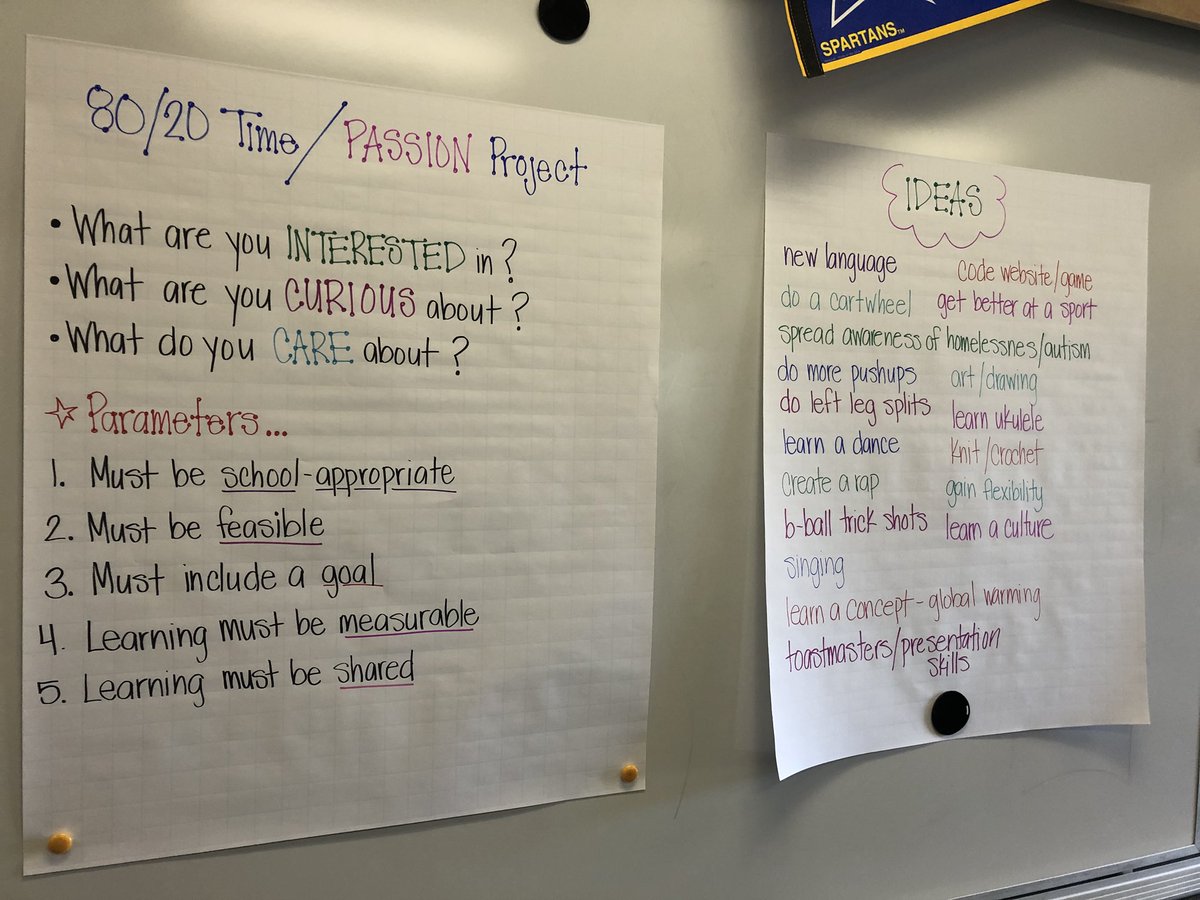 80/20 Time/PASSION Project
• What are you INTERESTED in?
• What are you CURIOUS about?
• What do you CARE about?
☆ Parameters...
1. Must be school-appropriate
2. Must be feasible
3. Must include a goal
4. Learning must be measurable
5. Learning must be shared
SPARTANS™
IDEAS
new language
do a cartwheel
spread awareness of homelessnes/autism
do more pushups
do left leg splits
learn a dance
create a rap
b-ball trick shots
singing
learn a concept - global warming
toastmasters/presentation
skills
code website/game
get better at a sport
art/drawing
learn ukulele
knit/crochet
gain flexibility
learn a culture